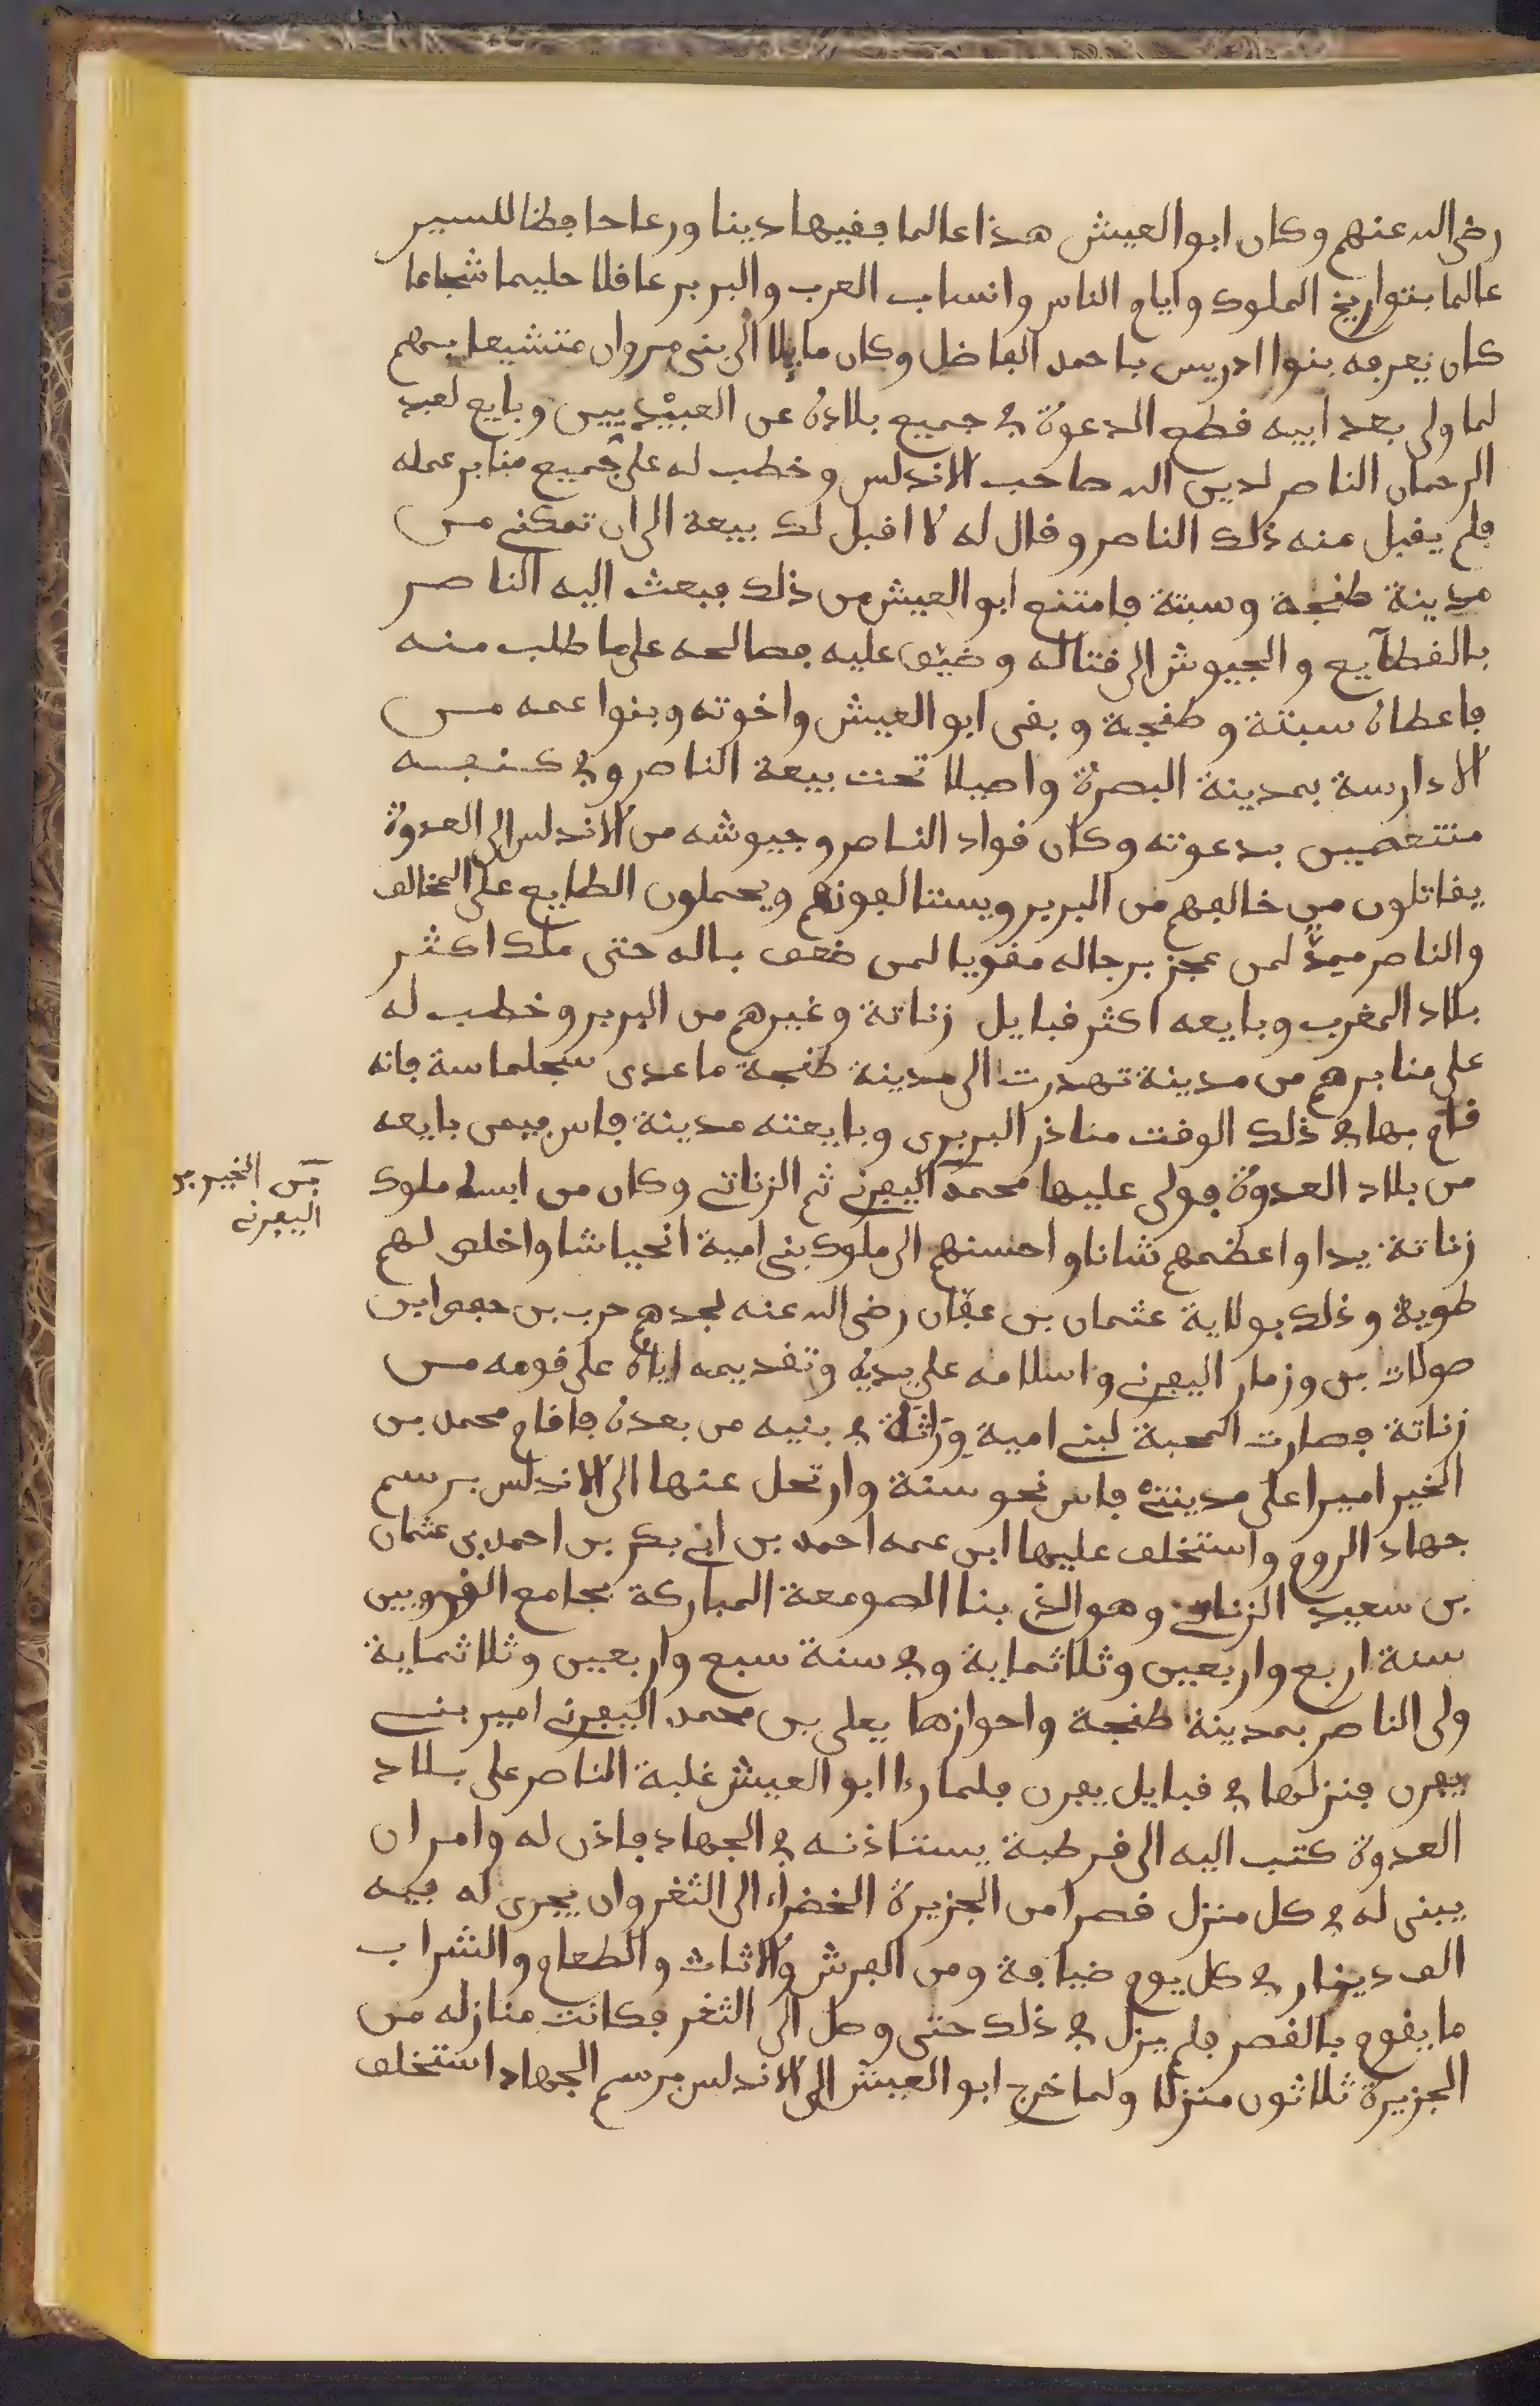 رضى الله عنهم وكان ابو العيش هذا عالما فقيها دينا ورعا حافظا للسير
عالما بتواريخ الملوك وايام الناس وانساب العرب والبربر عاقلا حليما شجاعا
كان يعرفه بنوا ادريس باحمد الفاضل وكان مايلا الى بنى مروان متشيعا بهم
لما ولى بعد ابيه قطع الدعوة في جميع بلاده عن العبيديين وبايع لعبد
الرحمان الناصر لدين الله صاحب الاندلس وخطب له على جميع منابر عمله
فلم يقبل منه ذلك الناصر وقال له لا اقبل لك بيعة الى ان تمكننى من
مدينة طنجة وسبتة فامتنع ابو العيش من ذلك فبعث اليه الناصر
بالقطآيع والجيوش الى قتاله وضيق عليه فصالحه على ما طلب منه
فاعطاه سبتة وطنجة وبقى ابو العيش واخوته وبنوا عمه من
الادارسة بمدينة البصرة واصيلا تحت بيعة الناصر وفي كنفه
منتعصين بدعوته وكان قواد الناصر وجيوشه من الاندلس الى العدوة
يقاتلون من خالفهم من البربر ويستالفونهم ويحملون الطايع على المخالف
والناصر ميمد لمن عجز برجاله مقويا لمن ضعف بماله حتى ملك اكثر
بلاد المغرب وبايعه اكثر قبايل زناتة وغيرهم من البربر وخطب له
على منابرهم من مدينة تهدرت الى مدينة طنجة ماعدى سجلماسة فانه
قام بها في ذلك الوقت مناذر البربرى وبايعته مدينة فاس فيمن بايعه
من بلاد العدوة فولى عليها محمد اليفرنى ثم الزناتى وكان من ابسط ملوك
بن الخير بن
اليفرنى
زناتة يدا واعظمهم شانا واحسنهم الى ملوك بنى امية انحياشا واخلص لهم
طوية وذلك بولاية عثمان بن عفان رضى الله عنه لجدهم حرب بن حفص ابن
صولات بن وزمار اليفرنى واسلامه على يديه وتقديمه اياه على قومه من
زناتة فصارت المحبة لبنى امية وراثة في بنيه من بعده فاقام محمد بن
الخير اميرا على مدينتى فاس نحو سنة وارتحل عنها الى الاندلس برسم
جهاد الروم واستخلف عليها ابن عمه احمد بن ابى بكر بن احمد بن عثمان
بن سعيد الزناتى وهو الذى بنا الصومعة المباركة بجامع القرويين
سنة اربع واربعين وثلاثماية وفي سنة سبع واربعين وثلاثماية
ولى الناصر بمدينة طنجة واحوازها يعلى بن محمد اليفرنى امير بنى
يفرن فنزلها في قبايل يفرن فلما راا ابو العيش غلبة الناصر على بلاد
العدوة كتب اليه الى قرطبة يستاذنه في الجهاد فاذن له وامر ان
يبنى له في كل منزل قصرا من الجزيرة الخضراء الى الثغر وان يجرى له فيه
الف دينار في كل يوم ضيافة ومن الفرش والاثاث والطعام والشراب
ما يقوم بالقصر فلم يزل في ذلك حتى وصل الى الثغر فكانت منازله من
الجزيرة ثلاثون منزلا ولما خرج ابو العيش الى الاندلس برسم الجهاد استخلف